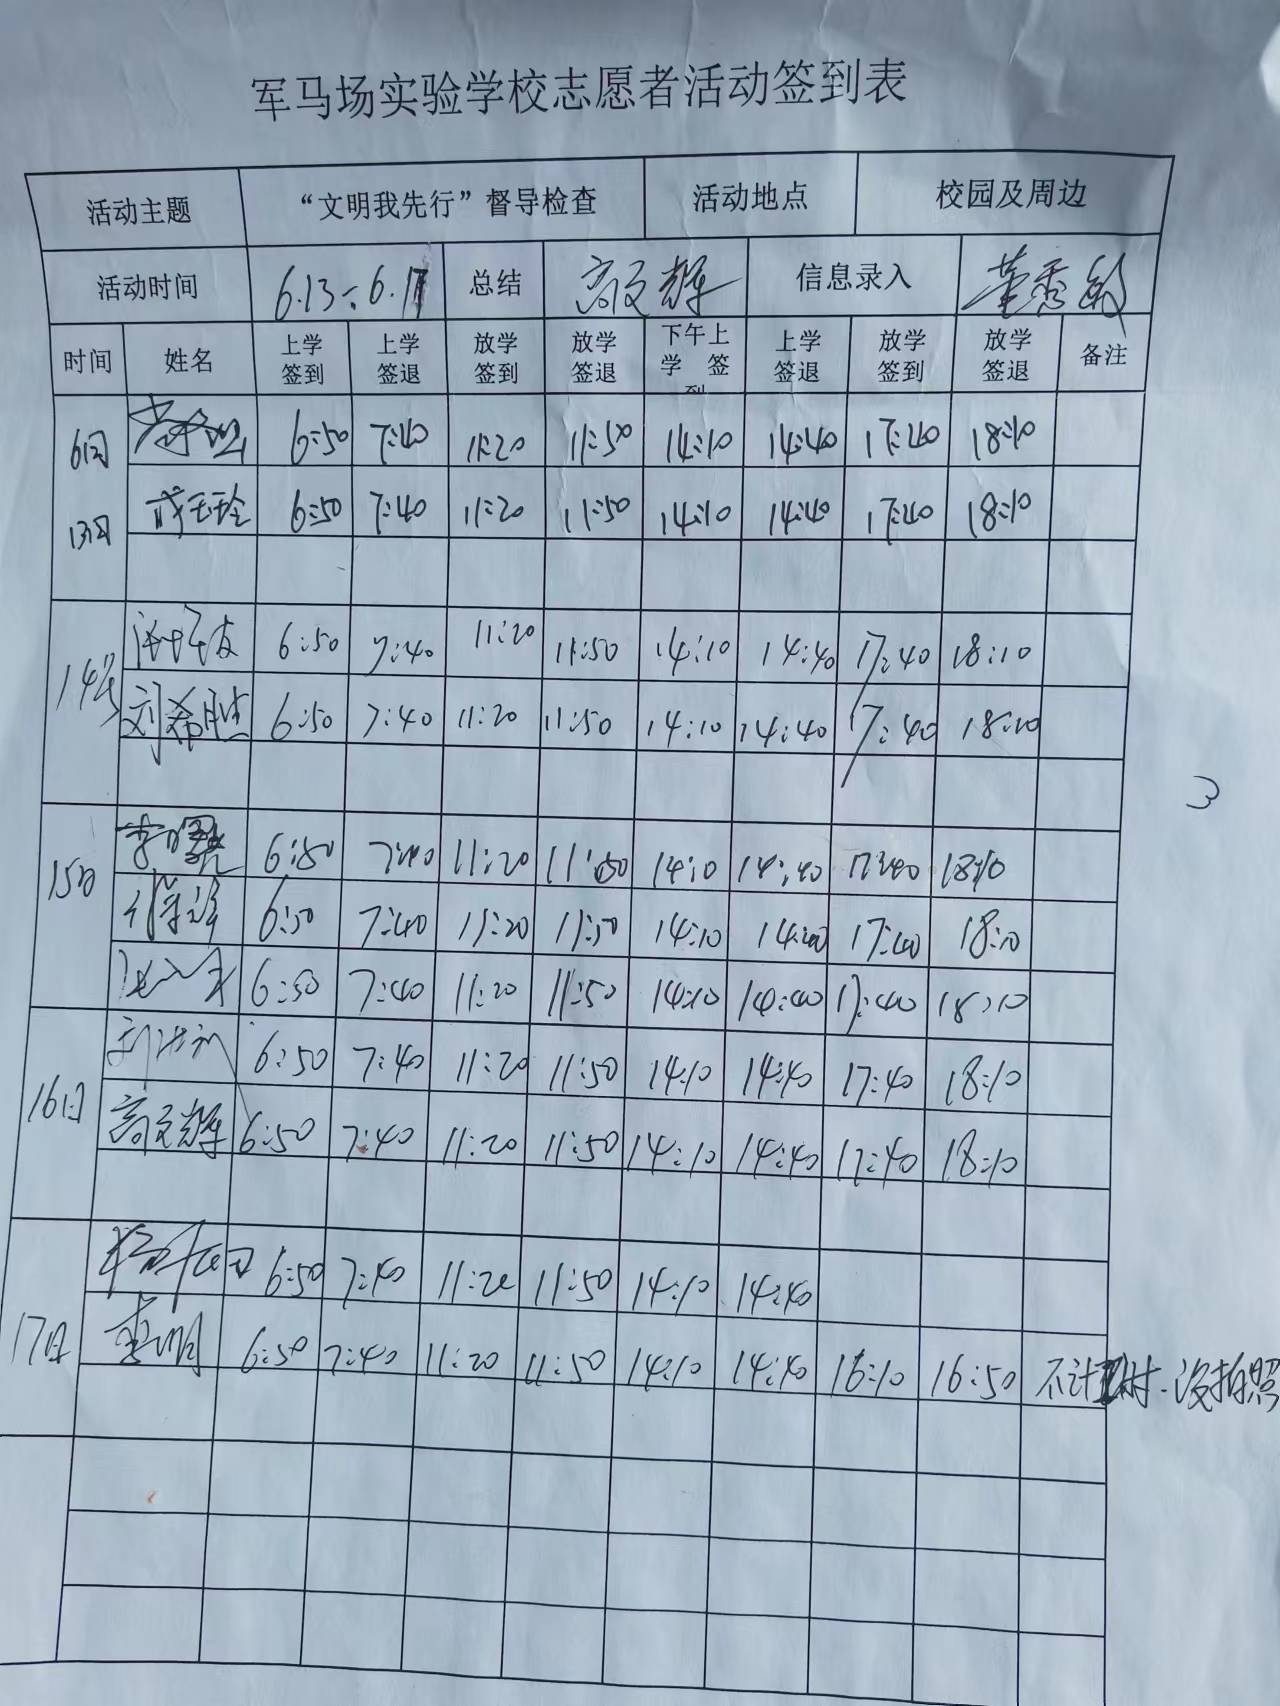 军马场实验学校志愿者活动签到表
活动主题 “文明我先行”督导检查 活动地点 校园及周边
活动时间 6.13-6.17 总结 高文辉 信息录入 董秀敏
时间 姓名 上学签到 上学签退 放学签到 放学签退 下午上学 签到 上学签退 放学签到 放学签退 备注
6月13日 6:50 7:40 11:20 11:50 14:10 14:40 17:40 18:10
戎玉玲 6:50 7:40 11:20 11:50 14:10 14:40 17:40 18:10
14号 6:50 7:40 11:20 11:50 14:10 14:40 17:40 18:10
刘希胜 6:50 7:40 11:20 11:50 14:10 14:40 17:40 18:10
3
15日 李 6:50 7:40 11:20 11:50 14:10 14:40 17:40 18:10
6:50 7:40 11:20 11:50 14:10 14:40 17:40 18:10
6:50 7:40 11:20 11:50 14:10 14:40 17:40 18:10
16日 6:50 7:40 11:20 11:50 14:10 14:40 17:40 18:10
高文辉 6:50 7:40 11:20 11:50 14:10 14:40 17:40 18:10
17日 6:50 7:40 11:20 11:50 14:10 14:40
李明 6:50 7:40 11:20 11:50 14:10 14:40 16:10 16:50 不计时.没拍照